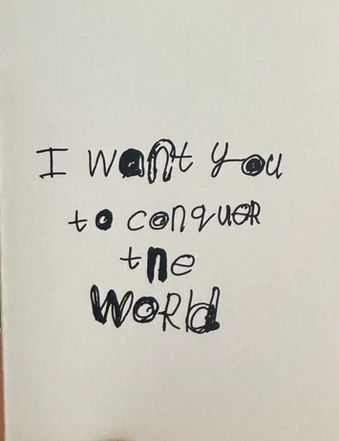 I want you
to conquer
tne
world